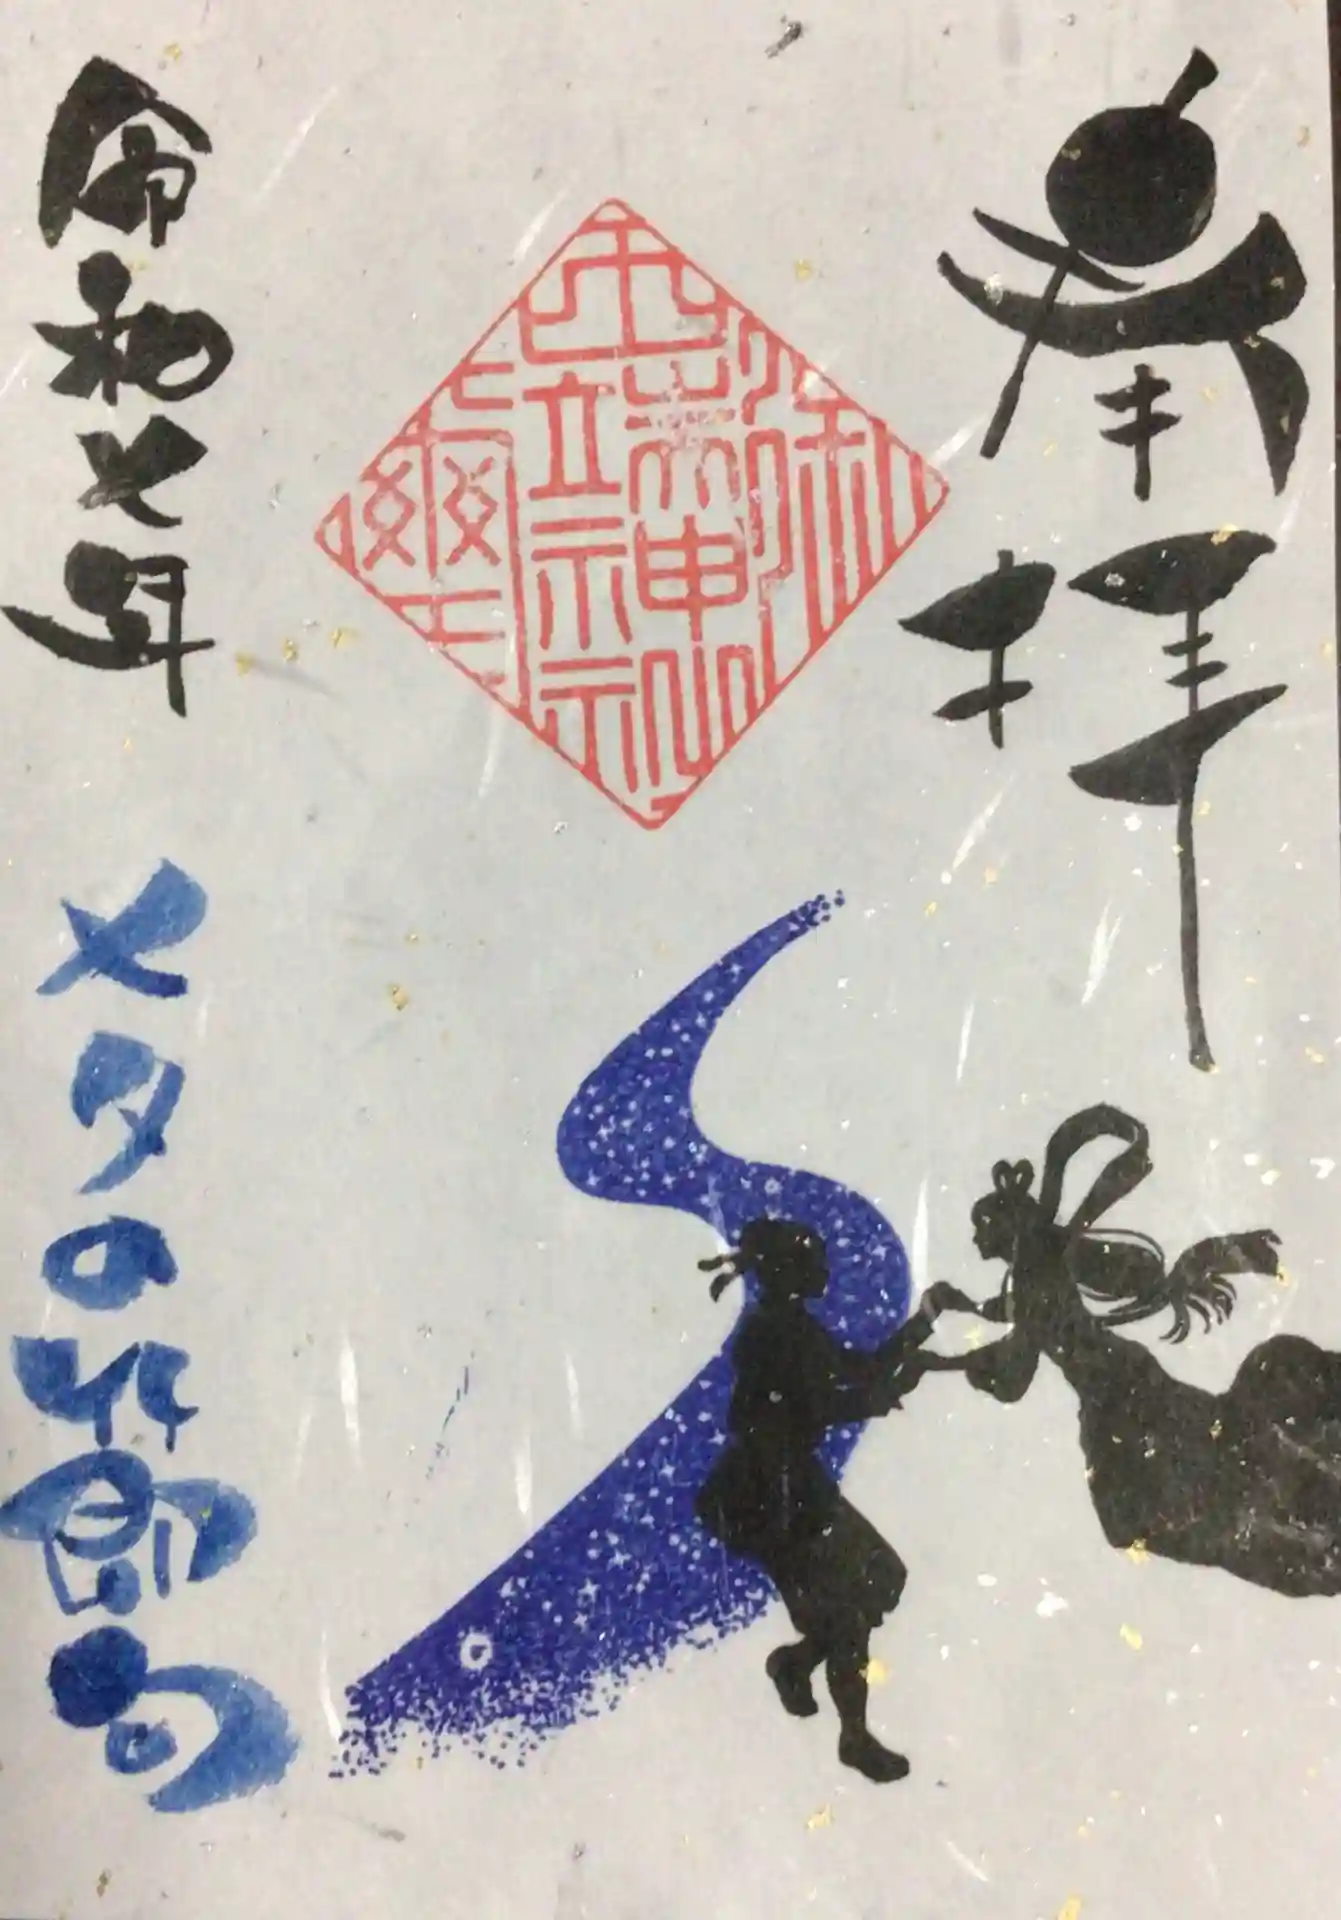 奉拝
令和七年
七夕の節句